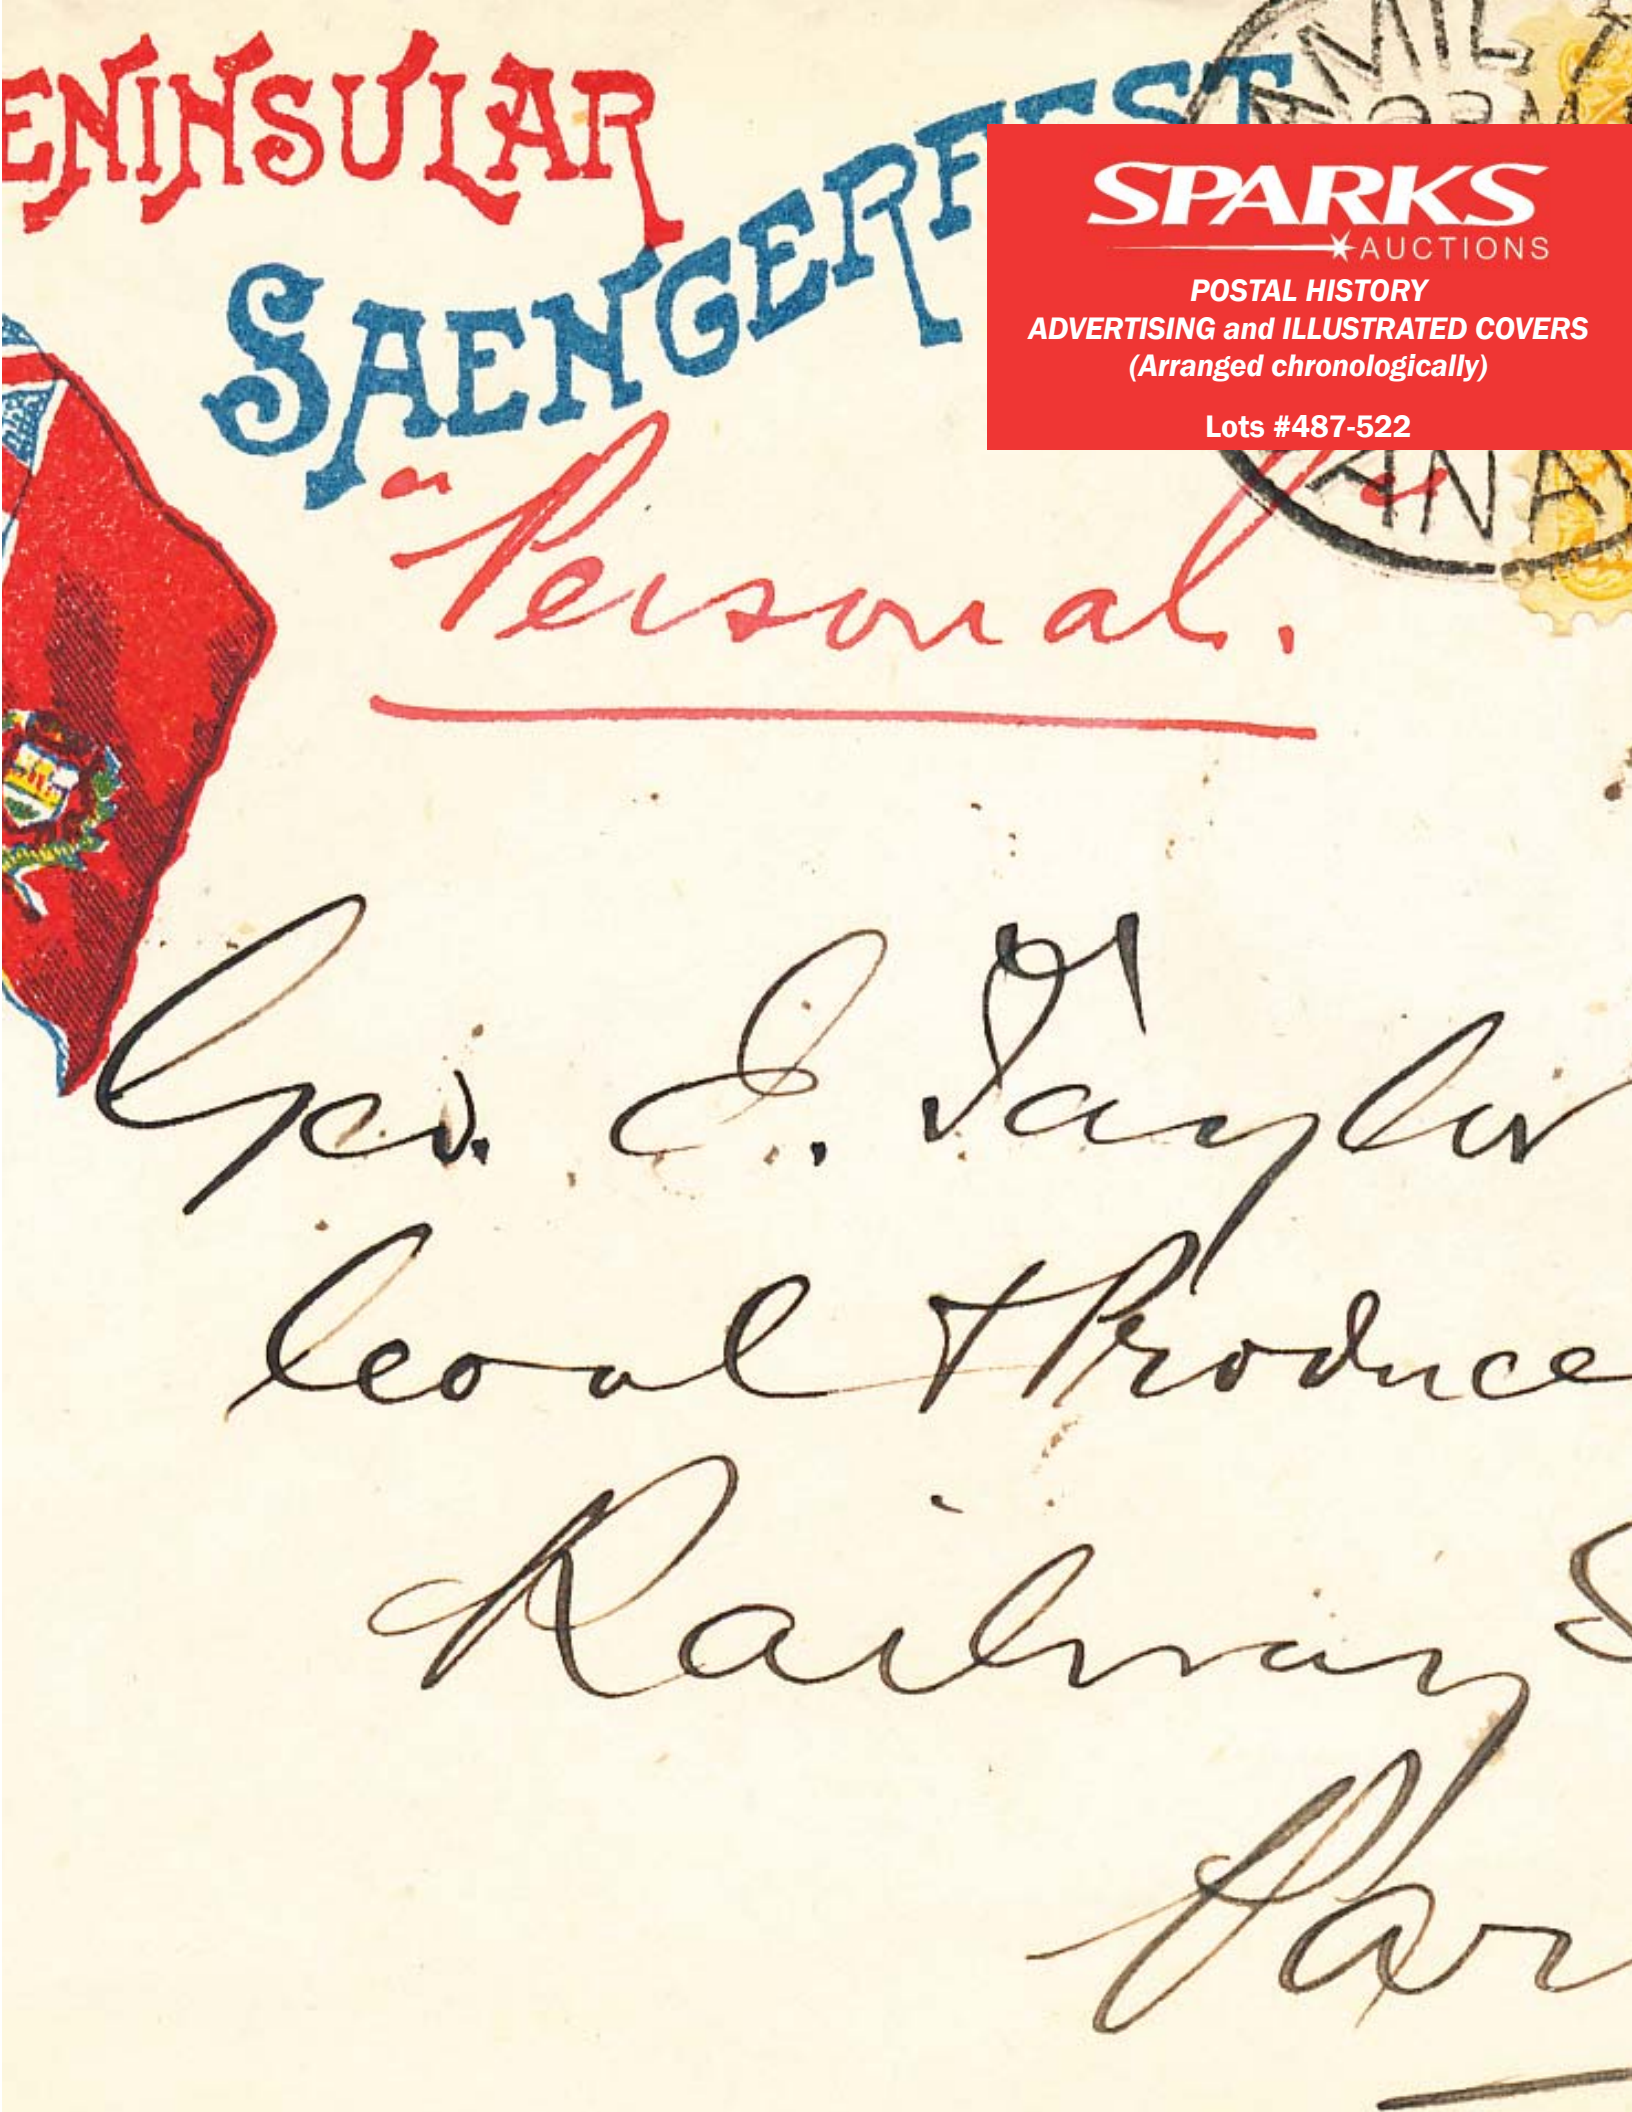 ENINSULAR
SAENGERFEST
SPARKS
AUCTIONS
POSTAL HISTORY
ADVERTISING and ILLUSTRATED COVERS
(Arranged chronologically)
Lots #487-522
AMILT
ANA
"Personal."
Geo. E. Taylor
Coal & Produce
Railway S
Par